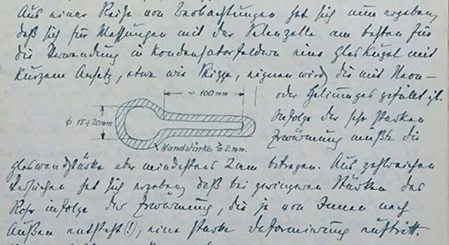 Aus einer Reihe von Beobachtungen hat sich nun ergeben
daß sich für Messungen mit der Kleinzelle am besten für
die Verwendung in Kondensatorfeldern eine Glaskugel mit
kurzem Ansatz, etwa wie Skizze, eignen wird, die mit Neon-
~ 100mm
oder Heliumgas gefüllt ist.
ϕ 15÷20mm
Infolge der sehr starken
Erwärmung müßte die
Wandstärke ≥ 2mm.
Glaswandstärke aber mindestens 2mm betragen. Aus zahlreichen
Versuchen hat sich ergeben daß bei geringeren Stärken das
Rohr infolge der Erwärmung, die ja von Innen nach
Außen entsteht!!, eine starke Deformierung auftritt.